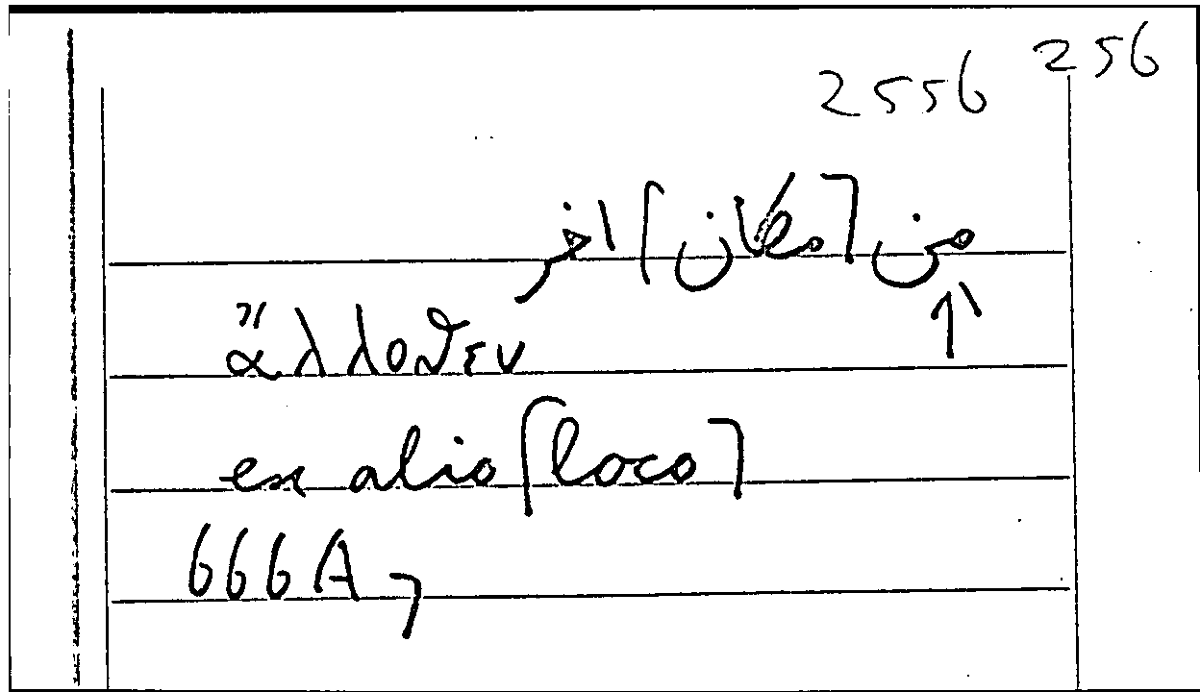 256
2556
من [مكان] اخر
ἄλλοθεν
ex alio [loco]
666A7